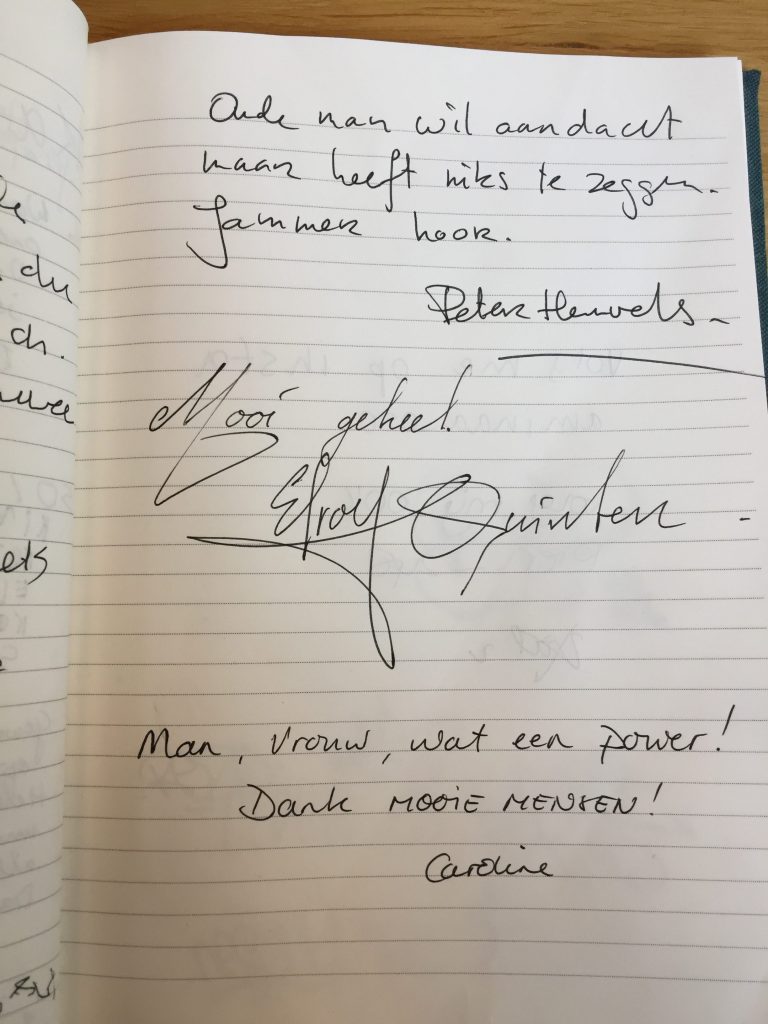 Oude man wil aandacht
maar heeft niks te zeggen.
Jammer hoor.
Peter Heuvels
Mooi geheel.
Quinten
Man, vrouw, wat een power!
Dank MOOIE MENSEN!
Caroline
du
ch.
ets